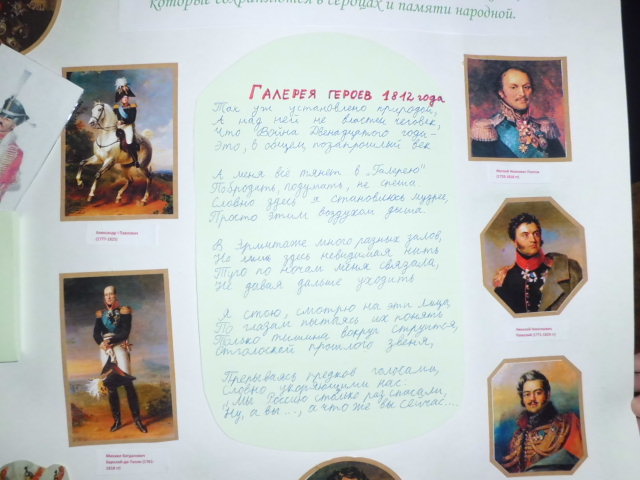 которые сохраняются в сердцах и памяти народной.
ГАЛЕРЕЯ ГЕРОЕВ 1812 года
Так уж установлено природой,
А над ней не властен человек,
Что "Война Двенадцатого года" –
Это, в общем, позапрошлый век.
А меня всё тянет в "Галерею"
Побродить, подумать, не спеша.
Словно здесь я становлюсь мудрее,
Просто этим воздухом дыша.
В Эрмитаже много разных залов,
Но лишь здесь невидимая нить
Туго по ночам меня связала,
Не давая дальше уходить
Я стою, смотрю на эти лица,
По глазам пытаясь их понять
Только тишина вокруг струится,
Отголоски прошлого звеня,
Прерываясь предков голосами,
Словно укоряющими нас:
"Мы Россию столько раз спасали,
Ну, а вы..., а что же вы сейчас...
Александр I Павлович
(1777-1825)
Михаил Богданович
Барклай-де-Толли (1761-
1818 гг)
Матвей Иванович Платов
Николай Николаевич
Раевский (1771-1829 гг)